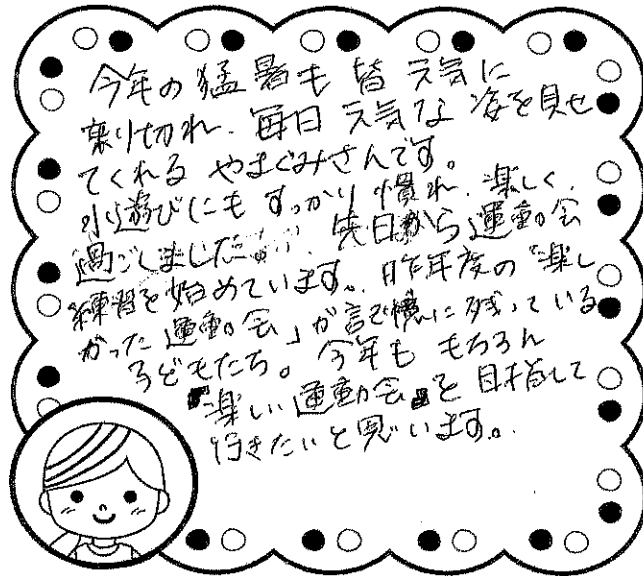 今年の猛暑も皆元気に
乗り切れ、毎日元気な姿を見せ
てくれるやまぐみさんです。
水遊びにもすっかり慣れ、楽しく、
過ごしました。先日から運動会
練習を始めています。昨年度の「楽し
かった運動会」が記憶に残っている
子どもたち。今年ももちろん
楽しい運動会を目指して
行きたいと思います。